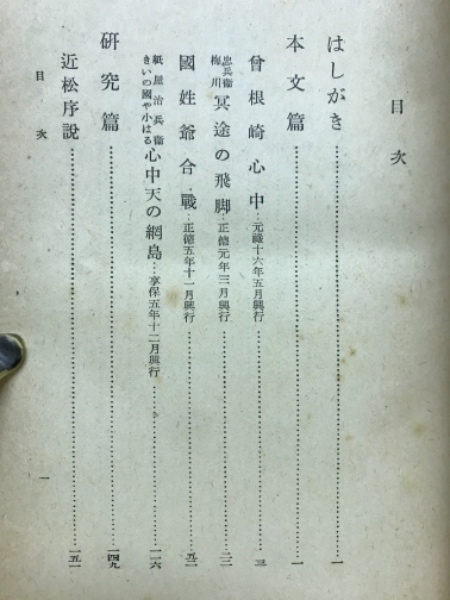 目次
はしがき…一
本文篇…一
曾根崎心中…元祿十六年五月興行…三
忠兵衞梅川 冥途の飛脚…正德元年三月興行…二二
國姓爺合戰…正德五年十一月興行…五二
紙屋治兵衞きいの國や小はる 心中天の網島…享保五年十二月興行…一一六
硏究篇…一四九
近松序說…一五一
目次
一